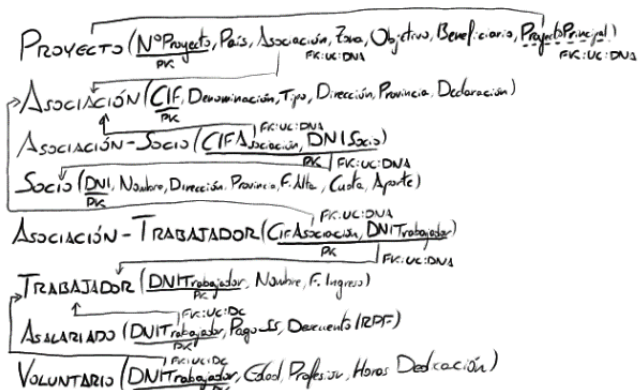 PROYECTO (NºProyecto, País, Asociación, Zona, Objetivo, Beneficiario, ProyectoPrincipal)
PK FK:UC:DNA FK:UC:DNA
ASOCIACIÓN (CIF, Denominación, Tipo, Dirección, Provincia, Declaración)
PK FK:UC:DNA
ASOCIACIÓN-SOCIO (CIFAsociación, DNISocio)
PK FK:UC:DNA
SOCIO (DNI, Nombre, Dirección, Provincia, F.Alta, Cuota, Aporte)
PK FK:UC:DNA
ASOCIACIÓN-TRABAJADOR (CIFAsociación, DNITrabajador)
PK FK:UC:DNA
TRABAJADOR (DNITrabajador, Nombre, F. Ingreso)
PK
FK:UC:DC
ASALARIADO (DNITrabajador, Pago SS, Descuento IRPF)
PK
FK:UC:DC
VOLUNTARIO (DNITrabajador, Edad, Profesión, Horas Dedicación)
PK